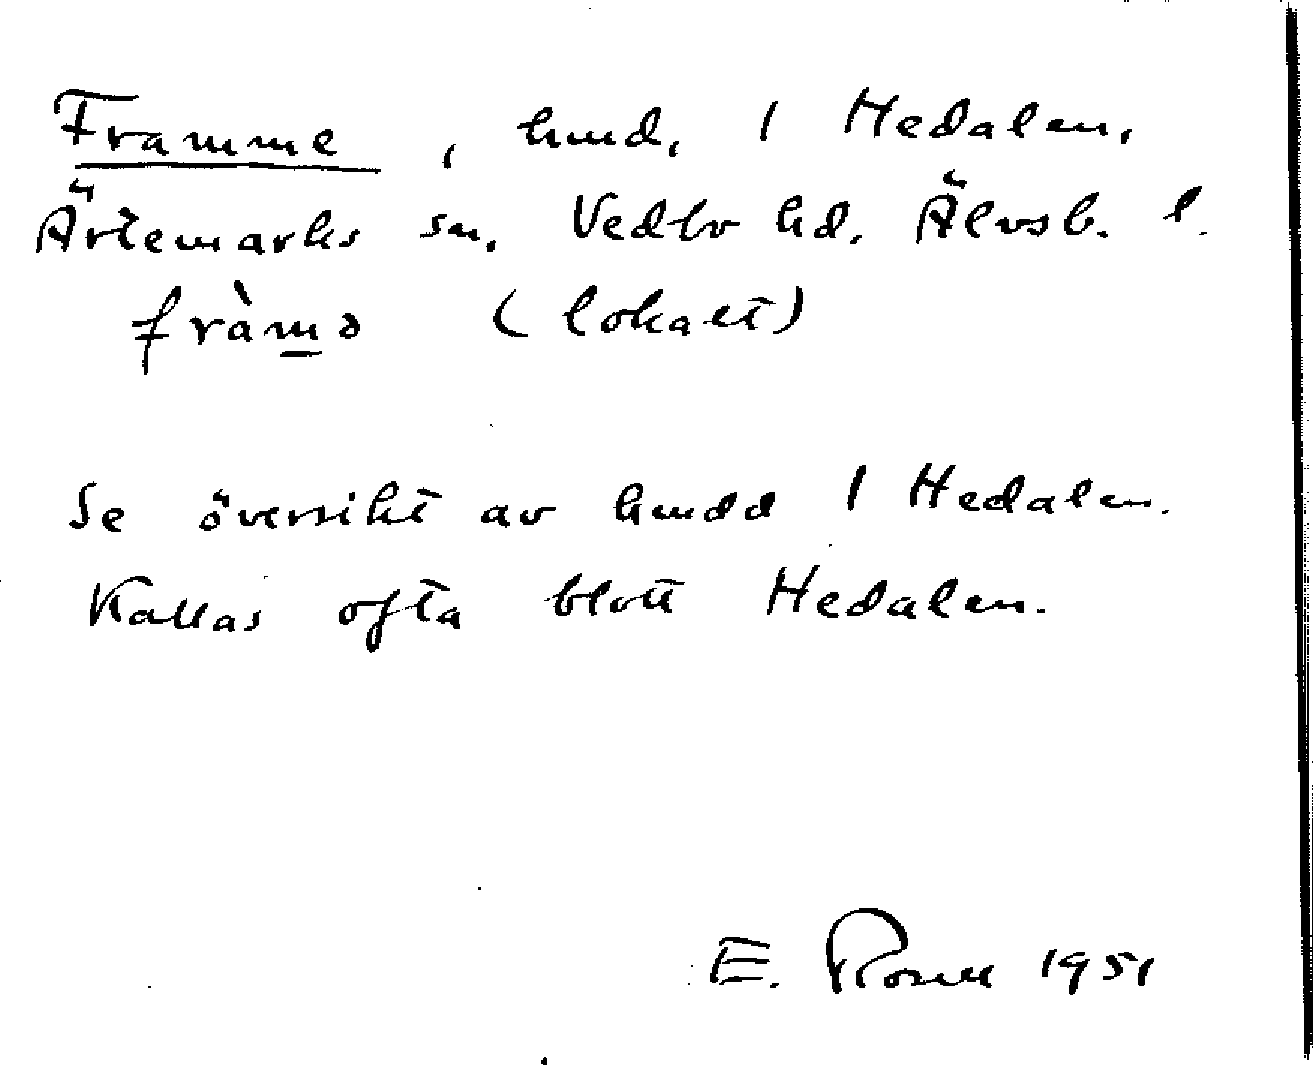 Framme, hmd, 1 Hedalen,
Ärtemarks sn, Vedbo hd. Älvsb. l.
fràmə (lokalt)
Se översikt av hmdd 1 Hedalen.
Kallas ofta blott Hedalen.
E. 1951